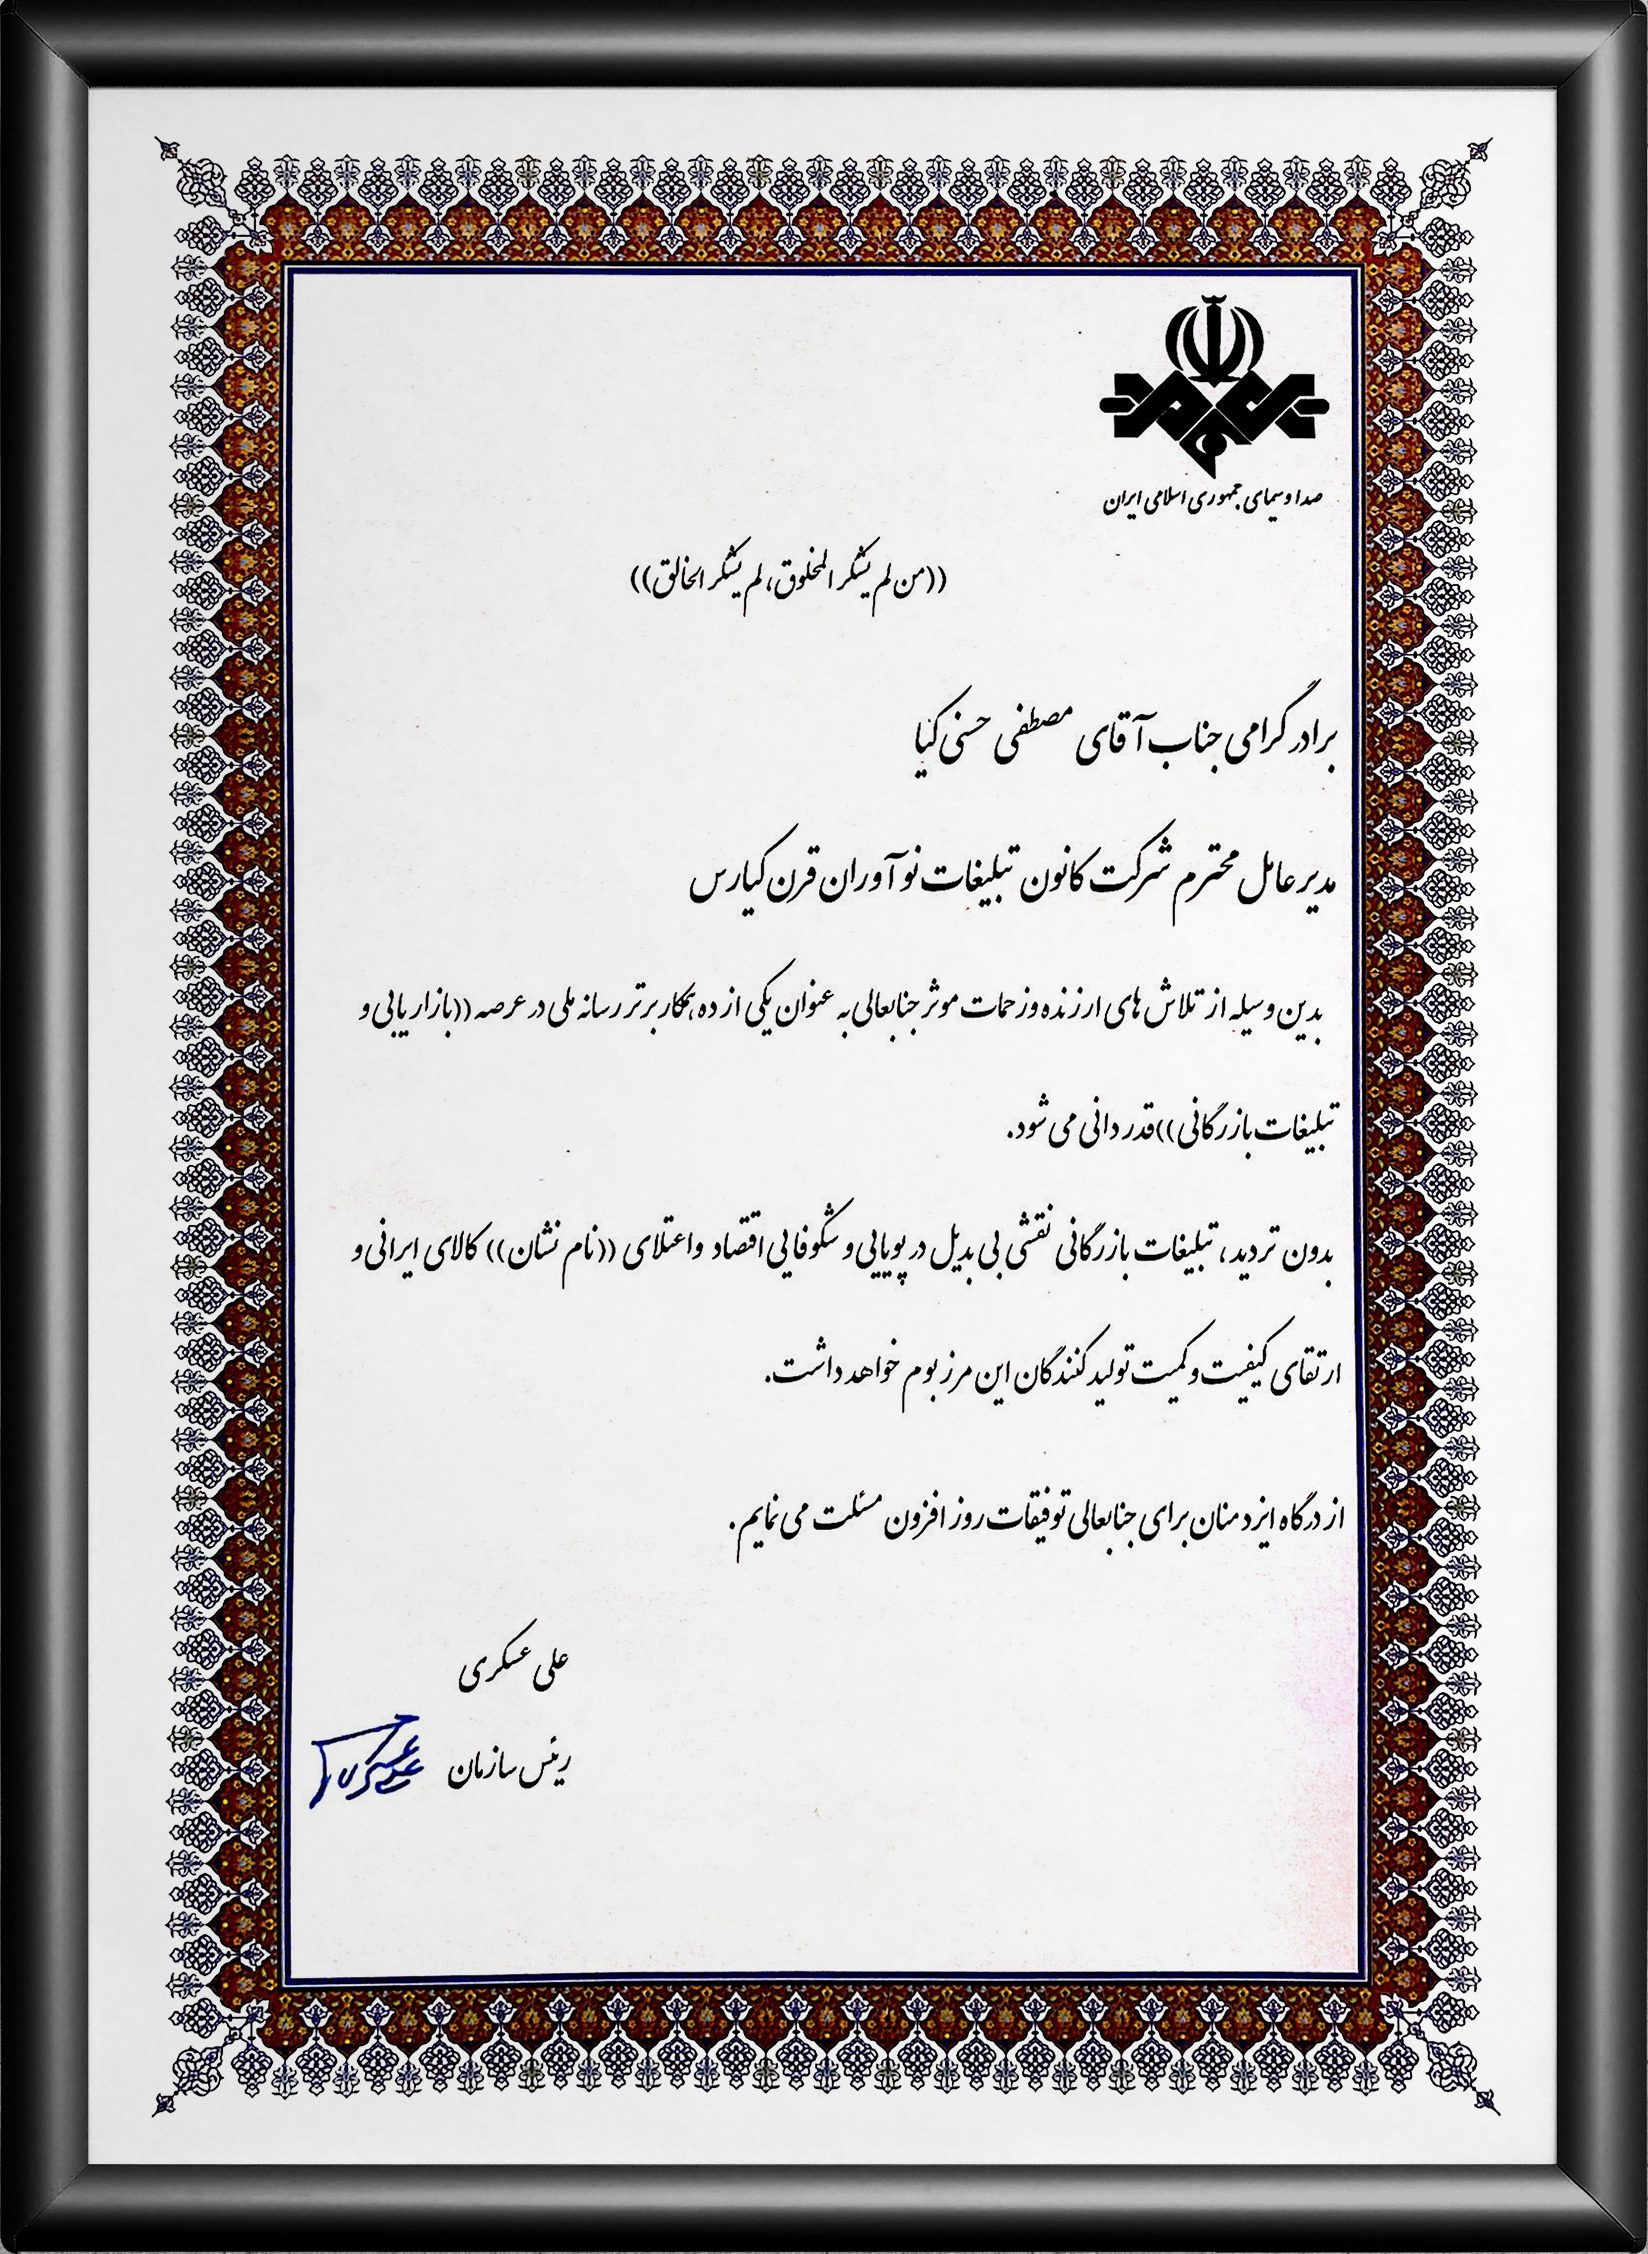 صدا و سیمای جمهوری اسلامی ایران
((من لم یشکر المخلوق، لم یشکر الخالق))
برادر گرامی جناب آقای مصطفی حسنی کیا
مدیر عامل محترم شرکت کانون تبلیغات نوآوران قرن کیارس
بدین وسیله از تلاش های ارزنده و زحمات موثر جنابعالی به عنوان یکی از ده همکار برتر رسانه ملی در عرصه ((بازاریابی و
تبلیغات بازرگانی)) قدردانی می شود.
بدون تردید، تبلیغات بازرگانی نقشی بی بدیل در پویایی و شکوفایی اقتصاد و اعتلای ((نام نشان)) کالای ایرانی و
ارتقای کیفیت و کمیت تولید کنندگان این مرز بوم خواهد داشت.
از درگاه ایزد منان برای جنابعالی توفیقات روز افزون مسئلت می نمایم.
علی عسکری
رئیس سازمان